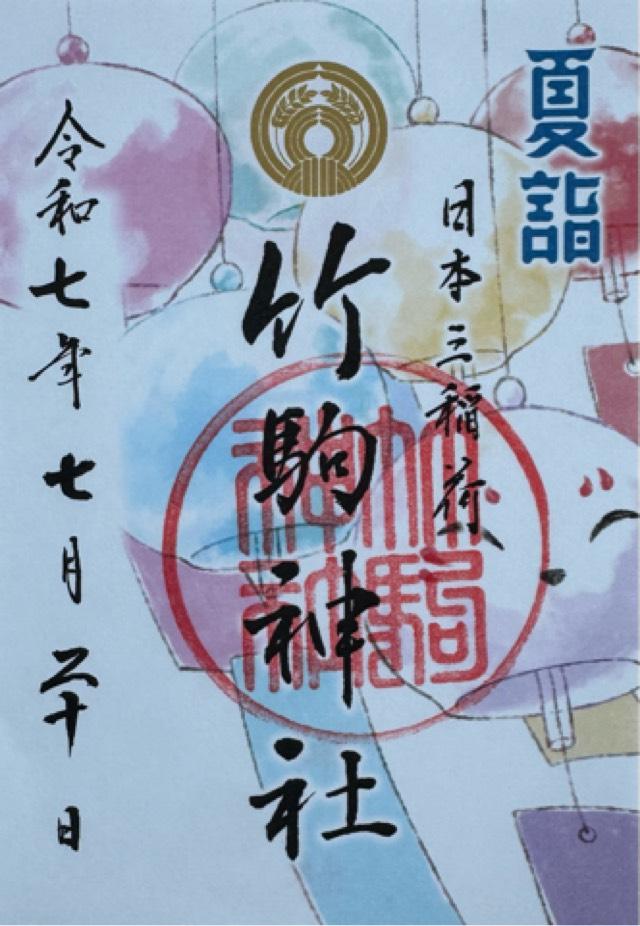 夏詣
日本三稲荷
竹駒神社
竹駒神社
令和七年七月二十日